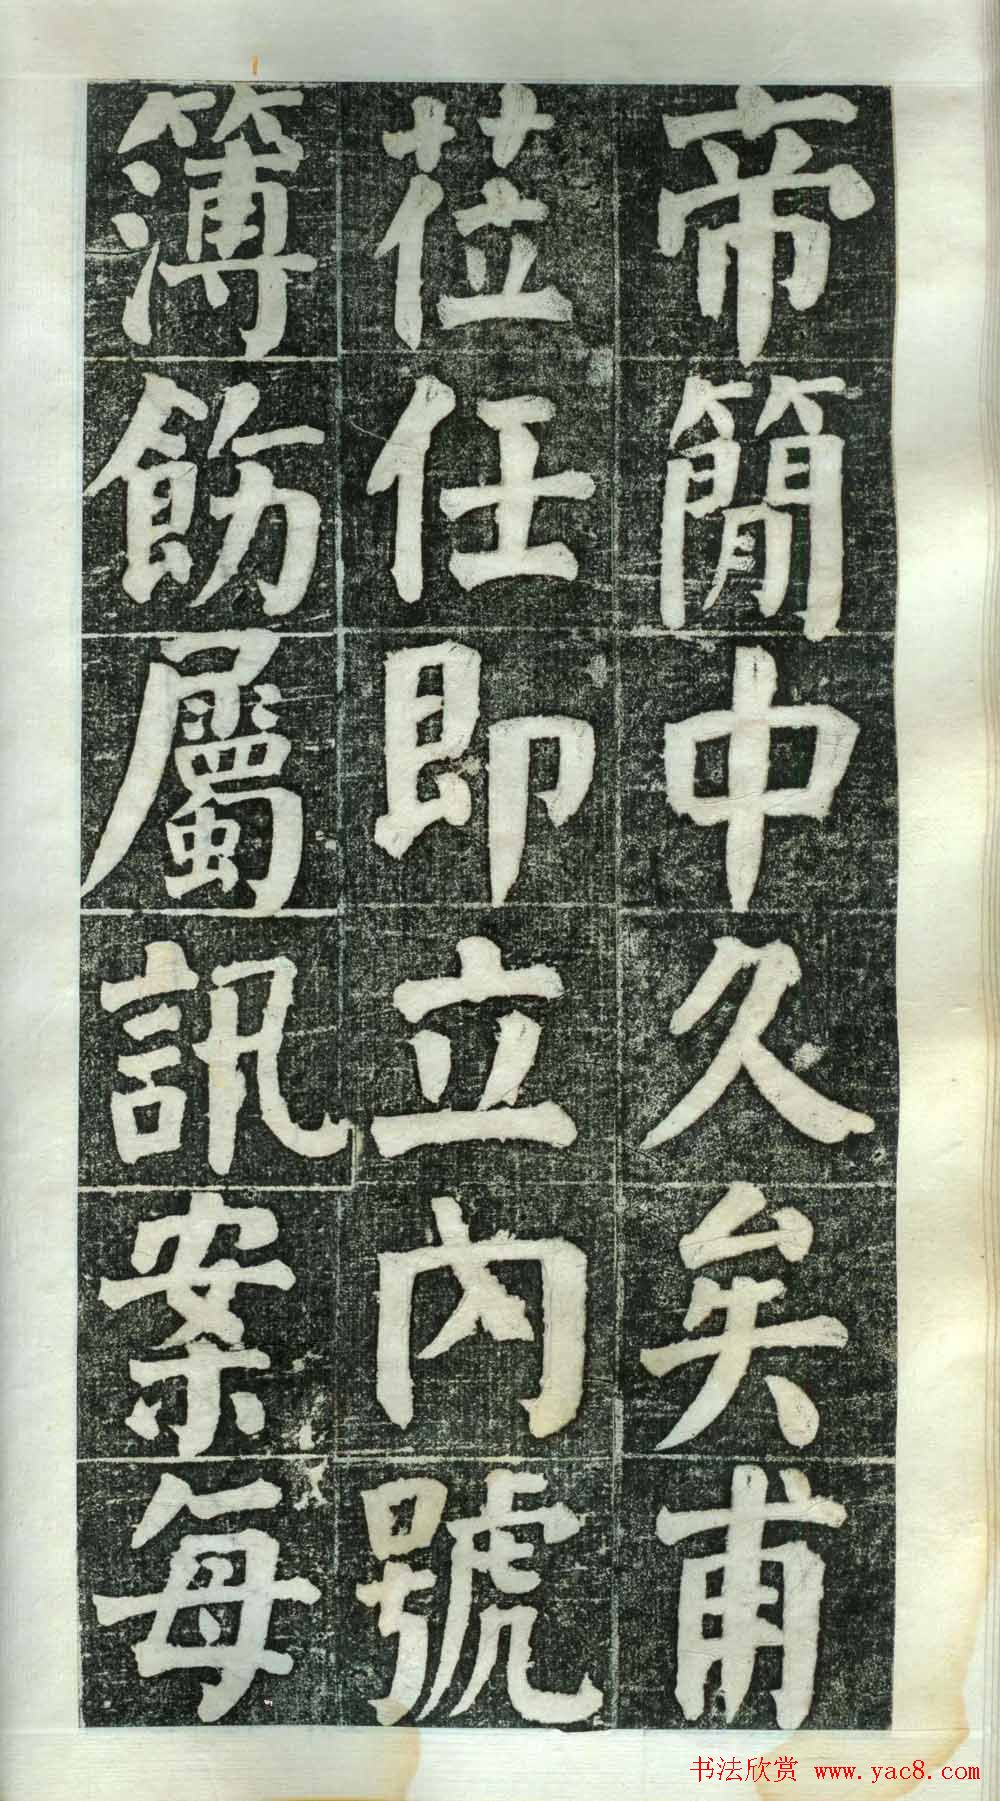 帝簡中久矣甫
莅任即立內號
簿飭屬訊案每
书法欣赏 www.yac8.com